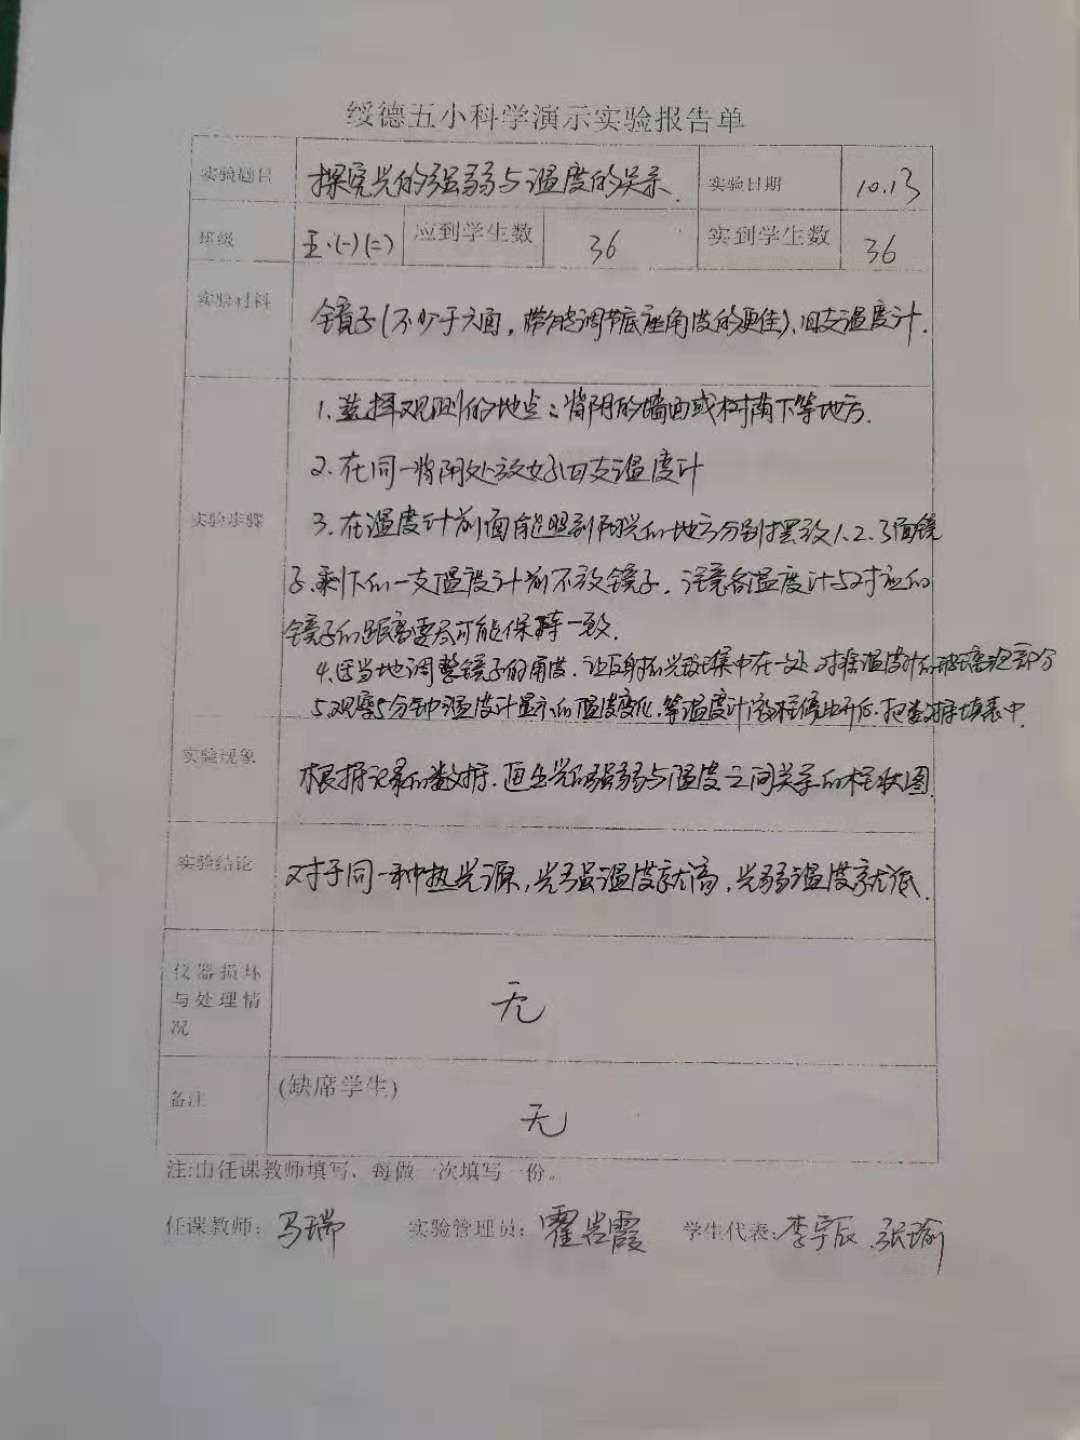 绥德五小科学演示实验报告单
实验题目 探究光的强弱与温度的关系. 实验日期 10.13
班级 五.(一)(二) 应到学生数 36 实到学生数 36
实验材料 镜子(不少于六面,带能调节底座角度的更佳)、四支温度计.
1.选择观测的地点:背阴的墙面或树荫下等地方.
2.在同一背阴处放好四支温度计
实验步骤
3.在温度计前面能照到阳光的地方分别摆放1、2、3面镜
子.剩下的一支温度计前不放镜子.注意各温度计与对应的
镜子的距离要尽可能保持一致.
4.适当地调整镜子的角度.让反射的光线集中在一处.对准温度计的玻璃泡部分
5.观察5分钟温度计显示的温度变化.等温度计液柱停止升后.把数据填表中.
实验现象 根据记录的数据.画出光的强弱与温度之间关系的柱状图.
实验结论 对于同一种热光源,光强温度就高,光弱温度就低.
仪器损坏
与处理情 无
况
备注 (缺席学生)
无
注:由任课教师填写、每做一次填写一份。
任课教师: 马瑞 实验管理员: 霍 霞 学生代表: 李宇辰.张瑜